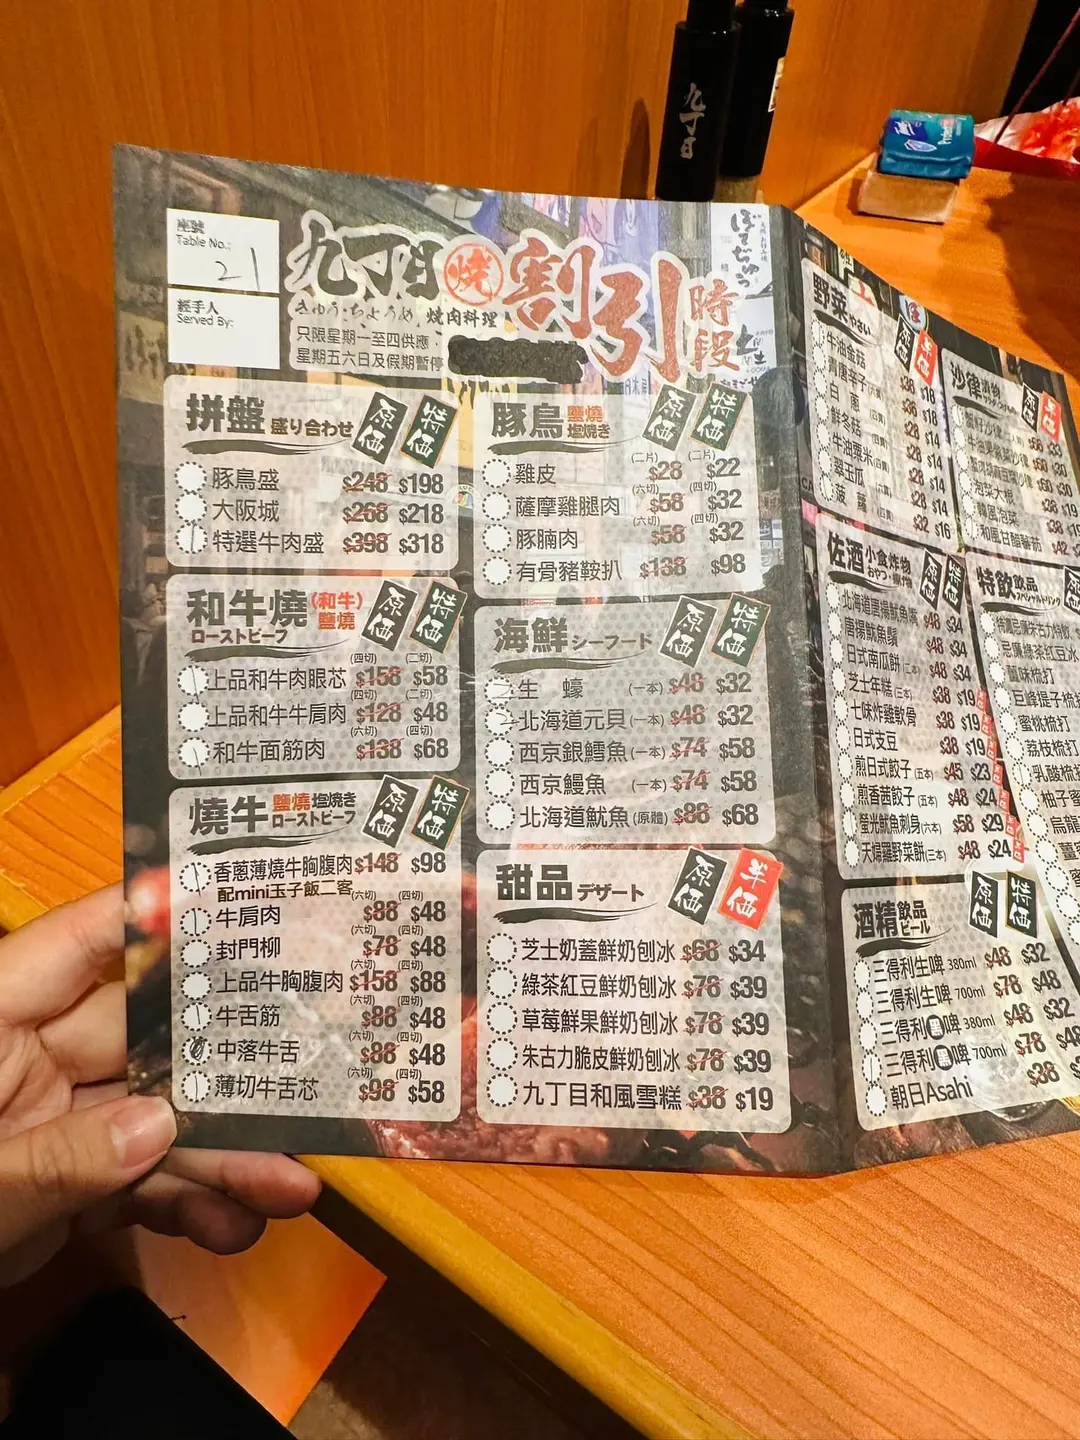 座號
Table No.:
21
經手人
Served By:
九丁目 燒 割引時段
きゅうちょうめ 焼肉料理
只限星期一至四供應，
星期五六日及假期暫停
拼盤 盛り合わせ 原価 特価
豚鳥盛 $248 $198
大阪城 $268 $218
特選牛肉盛 $398 $318
和牛燒 (和牛) 鹽燒 原価 特価
ローストビーフ
(四切) (二切)
上品和牛肉眼芯 $158 $58
(四切) (二切)
上品和牛牛肩肉 $128 $48
(六切) (四切)
和牛面筋肉 $138 $68
燒牛 鹽燒 塩焼き 原価 特価
ローストビーフ
香蔥薄燒牛胸腹肉 $148 $98
配mini玉子飯二客
(六切) (四切)
牛肩肉 $88 $48
(六切) (四切)
封門柳 $78 $48
(六切) (四切)
上品牛胸腹肉 $158 $88
(六切) (四切)
牛舌筋 $88 $48
(六切) (四切)
中落牛舌 $88 $48
(六切) (四切)
薄切牛舌芯 $98 $58
豚鳥 鹽燒 塩焼き 原価 特価
(二片) (二片)
雞皮 $28 $22
(六切) (四切)
薩摩雞腿肉 $58 $32
(六切) (四切)
豚腩肉 $58 $32
有骨豬鞍扒 $138 $98
海鮮 シーフード 原価 特価
生蠔 (一本) $48 $32
北海道元貝 (一本) $48 $32
西京銀鱈魚 (一本) $74 $58
西京鰻魚 (一本) $74 $58
北海道魷魚 (原體) $88 $68
甜品 デザート 原価 半価
芝士奶蓋鮮奶刨冰 $68 $34
綠茶紅豆鮮奶刨冰 $78 $39
草莓鮮果鮮奶刨冰 $78 $39
朱古力脆皮鮮奶刨冰 $78 $39
九丁目和風雪糕 $38 $19
野菜 やさい 原価 半価
牛油金菇 $36 $18
青唐辛子 $36 $18
白蔥 $28 $14
鮮冬菇 $28 $14
牛油粟米 $28 $14
翠玉瓜 $28 $14
菠蘿 $32 $16
佐酒 小食炸物 原価 特価
おやつ・揚げ物
北海道唐揚魷魚嘴 $48 $34
唐揚魷魚鬚 $48 $34
日式南瓜餅 (二本) $48 $34
芝士年糕 (三本) $38 $19
七味炸雞軟骨 $38 $19
日式支豆 $38 $19
煎日式餃子 (五本) $45 $23
煎香茜餃子 (五本) $48 $24
螢光魷魚刺身 (六本) $58 $29
天婦羅野菜餅 (三本) $48 $24
酒精 飲品 ビール 原価 特価
三得利生啤 380ml $48 $32
三得利生啤 700ml $78 $48
三得利黑啤 380ml $48 $32
三得利黑啤 700ml $78 $48
朝日Asahi $38
沙律 漬物 原価 半価
泡菜大根 $38 $19
韓風泡菜 $38 $19
和風甘醋蕃茄 $42
特飲 飲品 原
スペシャルドリンク
忌廉綠茶紅豆冰
薑味梳打
巨峰提子梳打
蜜桃梳打
荔枝梳打
乳酸梳打
柚子蜜
烏龍
九丁目